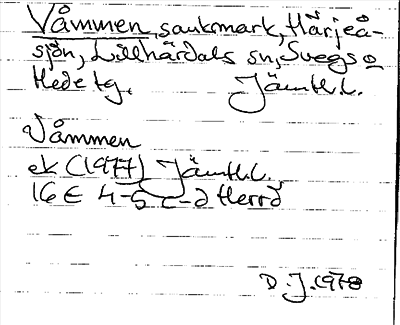 Våmmen, sankmark, Härjeå-
sjön, Lillhärdals sn, Svegs o
Hede tg. Jämtl.l.
Våmmen
ek (1977) Jämtl.l.
16E 4-5 c-d Herrö
D.J. 1978